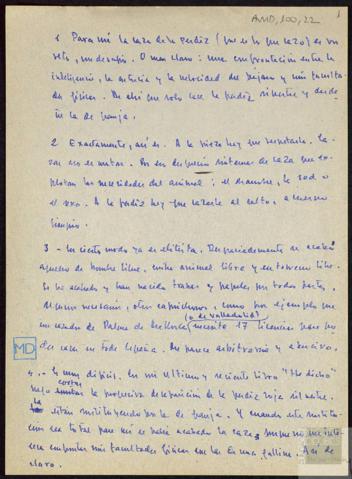 AMD, 100, 22
1
1 Para mí la caza de la perdiz (que es la que cazo) es un
reto, un desafío. O mas claro: una confrontación entre la
inteligencia, la astucia y la velocidad del pájaro y mis faculta-
des físicas. De ahí que solo cace la perdiz silvestre y desde-
ñe la de granja.
2 Exactamente, así es. A la pieza hay que respetarla. Ca-
zar no es matar. Por eso desprecio sistemas de caza que ex-
plotan las necesidades del animal: el hambre, la sed o
el sexo. A la perdiz hay que cazarla al salto, a
limpio.
3 - En cierto modo ya es elitista. Desgraciadamente se acabó
aquello de hombre libre, contra animal libre y en terreno libre.
Se ha acabado y han nacido trabas y papeles por todas partes,
algunos necesarios, otros caprichosos, como por ejemplo que
un cazador de Palma de Mallorca (o de Valladolid) necesite 17 licencias para po-
MD
der cazar en toda España. Me parece arbitrario y abusivo.
4.- Es muy difícil. En mi último y reciente libro "He dicho"
la progresiva desaparición de la perdiz roja silvestre.
La están sustituyendo por la de granja. Y cuando esta sustitu-
ción sea total para mí se habrá acabado la caza,
mis facultades físicas con las de una gallina. Así de
claro.